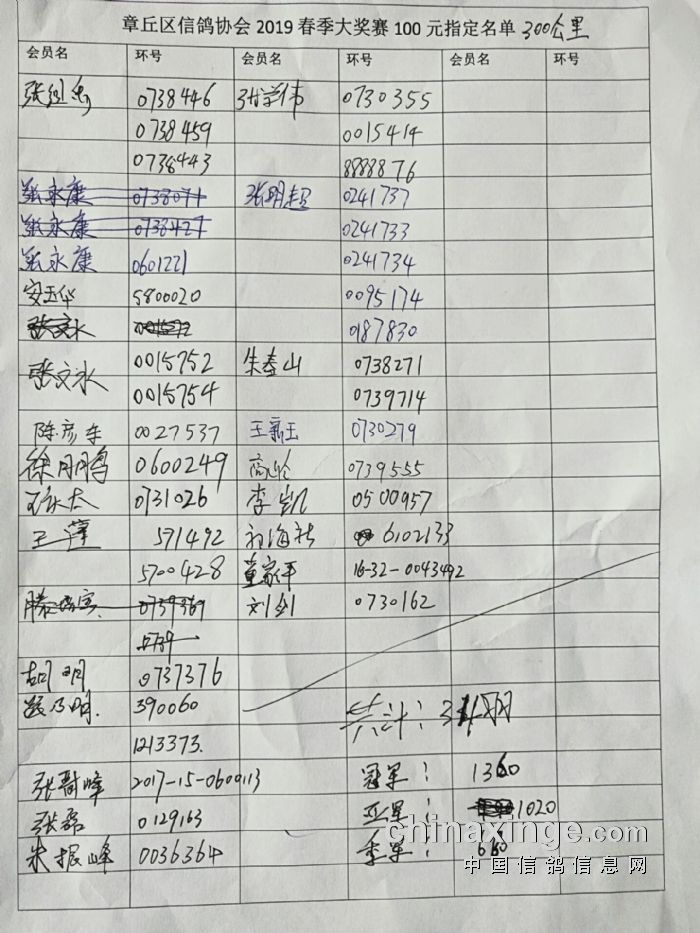 章丘区信鸽协会 2019 春季大奖赛 100 元指定名单 300公里
会员名 环号 会员名 环号 会员名 环号
0738446 张学伟 0730355
0738459 0015414
0738443 8888876
张永康 0738071 张明超 0241737
张永康 0738427 0241733
张永康 0601221 0241734
安玉华 5800020 0095174
张文水 0187830
张文水 0015752 朱泰山 0738271
0015754 0739714
陈彦年 0027537 王新玉 0730279
徐朋鹏 0600249 高岭 0739555
0731026 李凯 0500957
王莲 571492 6102133
5700428 董家平 16-32-0043492
0739369 刘剑 0730162
0739
胡明 0737376
390060 共计：3 羽
1213373.
张爵峰 2017-15-0600113 冠军：1360
张磊 0129163 亚军：1020
朱振峰 0036364 季军：660
chinaxinge.com
中国信鸽信息网